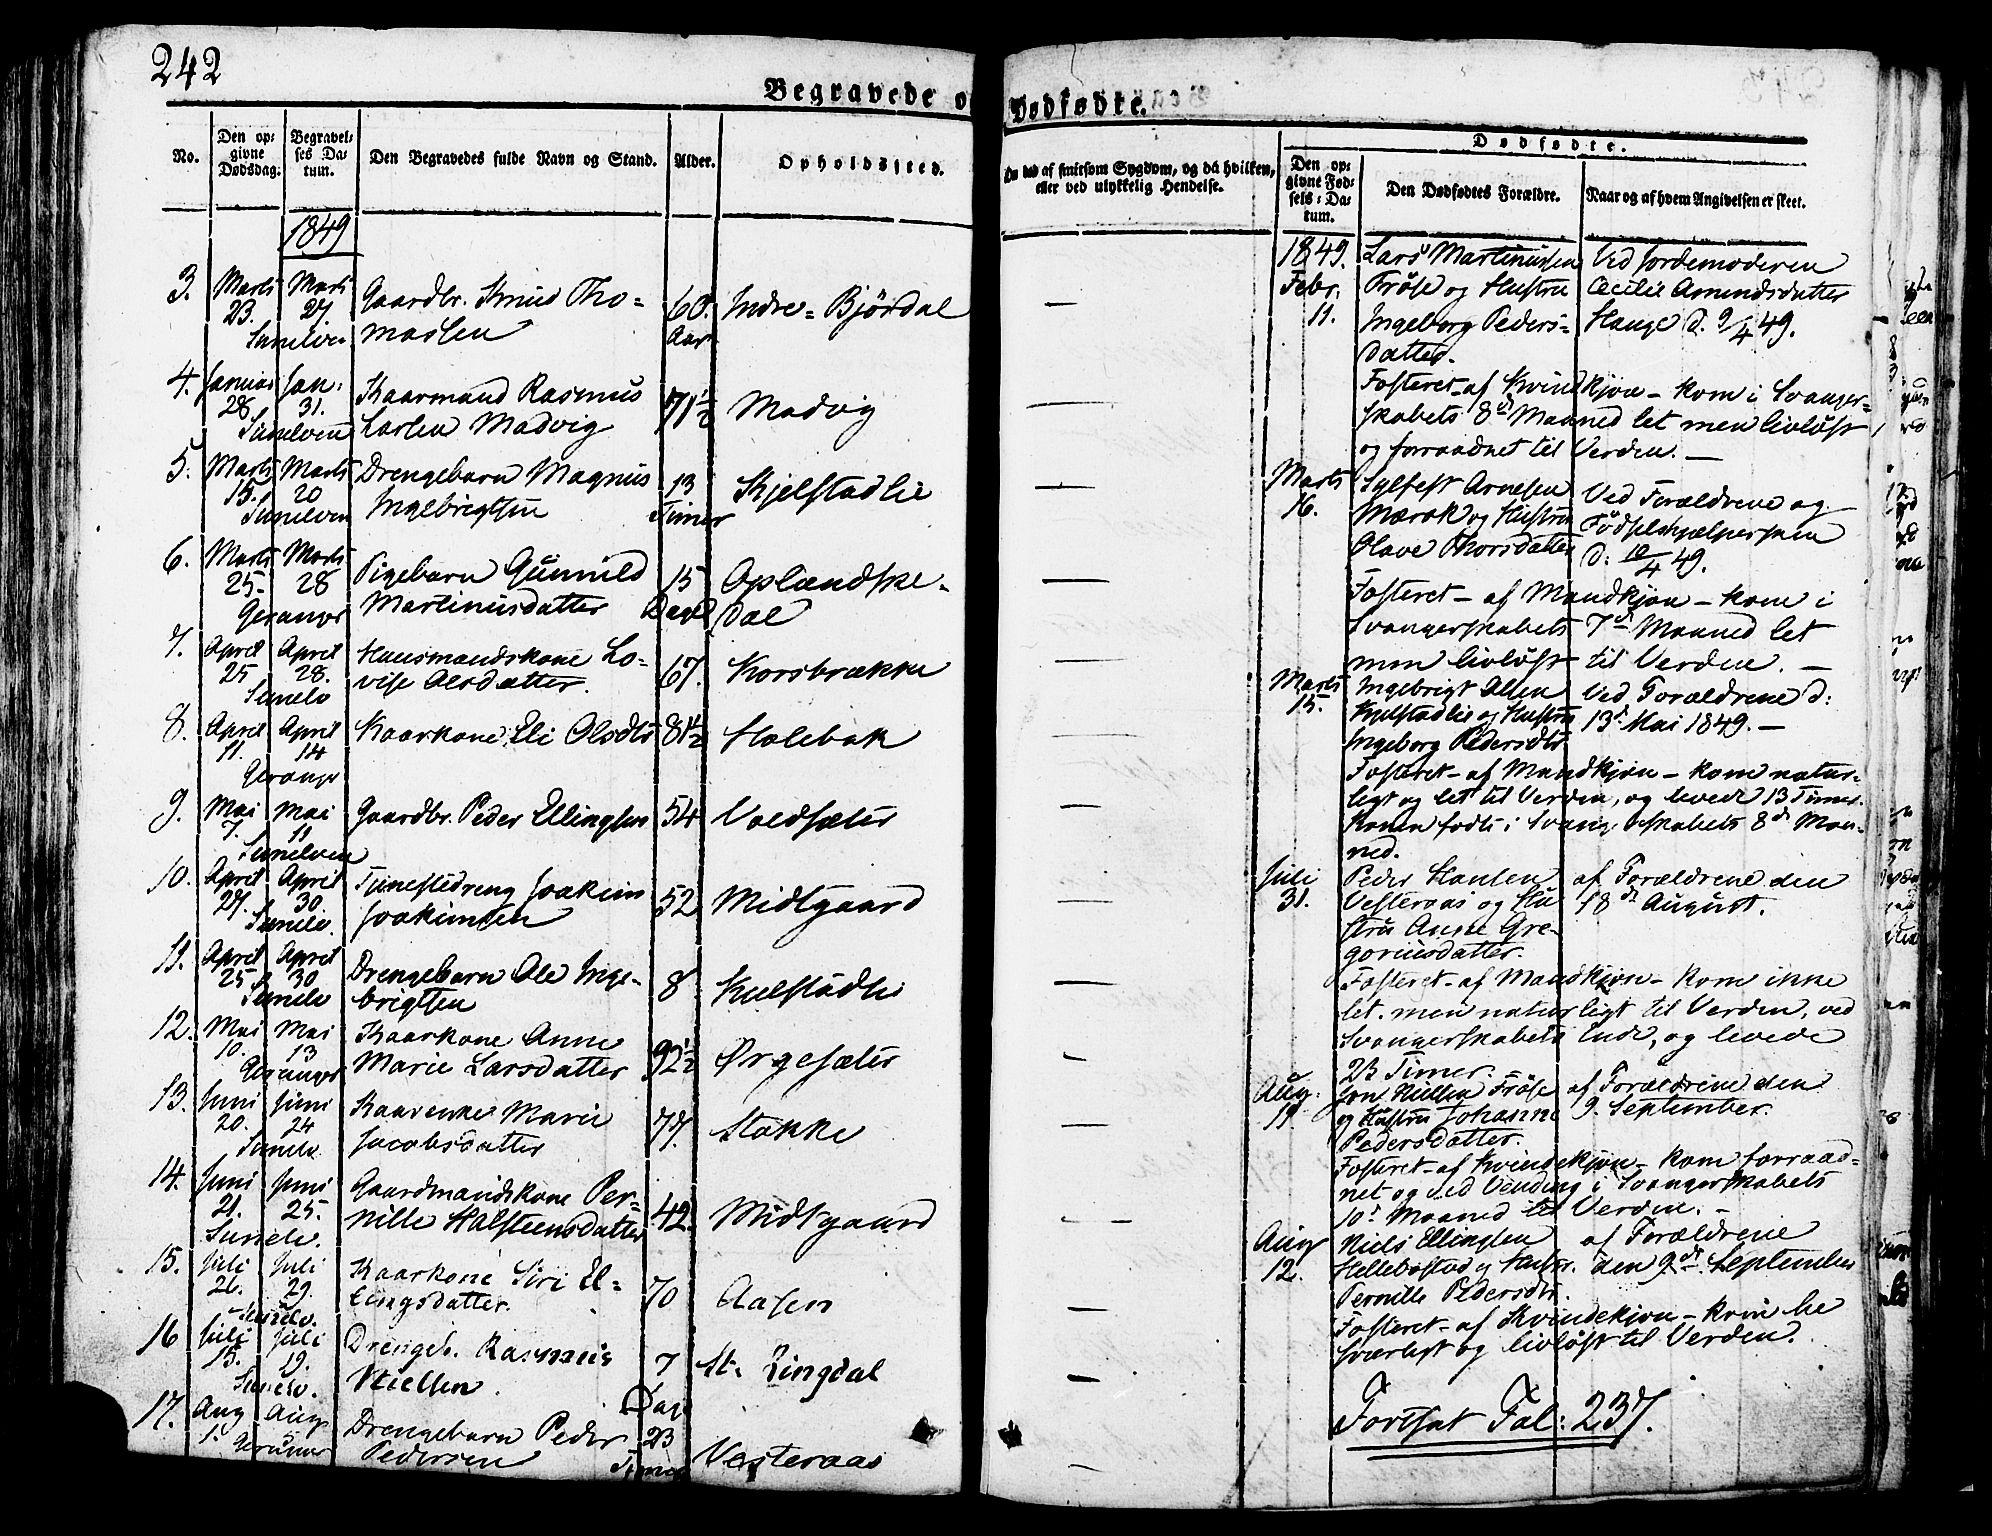 242
Begravede o
No.
Den op=
givne
Dødsdag.
Begravel=
ses Da=
tum.
Den Begravedes fulde Navn og Stand.
Alder.
Opholdssted.
1849
3. Marts Marts Gaardbr. Knud Tho= 60. Indre=Bjørdal
23. 27 massen Aar
Sunelven
4. Januar Jan: Kaarmand Rasmus 71½ Madvig
28. 31. Larsen Madvig
Sunelven
5. Marts Marts Drengebarn Magnus 13 Kjelstadlie
15. 20 Ingebrigtsen Timer
Sunelven
6. Marts Marts Pigebarn Gunnild 15 Oplandske=
25. 28 Martinusdatter Dage dal
Geranger
7. April April Huusmandskone Lo= 67. Korsbrække
25 28. vise Olsdatter.
Sunelv
8. April April Kaarkone Eli Olsdtr 81½ Holebak
11. 14
Geranger
9. Mai Mai Gaardbr. Peder Ellingsen 54 Voldsæter
7. 11
Sunelven
10. April April Tjenestedreng Joakim 52 Midtgaard
27. 30. Joakimsen
Sunelv.
11. April April Drengebarn Ole Inge= 8
25 30 brigtsen
Sunelv
12. Mai Mai Kaarkone Anne 92½ Ørgesæter
10. 13 Marie Larsdatter
Geranger
13. Juni Juni Kaarenke Marie 77. Stokke
20. 24 Jacobsdatter
Sunelv.
14. Juni Juni Gaardmandskone Per= 42. Midtgaard
21. 25. nille Halsteensdatter
Sunelv.
15. Juli Juli Kaarkone Siri El= 70 Aasen
26. 29. lingsdatter.
Sunelv.
16 Juli Juli Drengeb. Rasmus 7 St. Ringdal
15. 19. Nielsen. Dage
Sunelv.
17. Aug Aug Drengebarn Peder 23 Vesteraas
1. 5 Pedersen Timer
Geranger
Dødfødte.
Om død af smitsom Sygdom, og da hvilken,
eller ved ulykkelig Hendelse.
Dødfødte.
Den op=
givne Fød=
sels=Da=
tum.
Den Dødfødtes Forældre.
Naar og af hvem Angivelsen er skeet.
1849. Lars Martinussen Ved Jordemoderen
Febr. Frøse og Hustru Cecilie Amundsdatter
11. Ingeborg Peders= Hauge d. 9/4 49.
datter.
Fosteret - af Kvindkjøn - kom i Svanger=
skabets 8de Maaned let men livløst
og forraadnet til Verden. —
Marts Sylfest Arnesen Ved Forældrene og
16. Mærak og Hustru Fødselshjælpersken
Olave Thorsdatter d: 10/4 49.
Fosteret - af Mandkjøn - kom i
Svangerskabets 7de Maaned let
men livløst til Verden. —
Marts Ingebrigt Olsen Ved Forældrene d:
15. Kjelstadlie og Hustru 13d Mai 1849. —
Ingeborg Pedersdtr
Fosteret - af Mandkjøn - kom natur=
ligt og let til Verden, og levede 13 Timer.
Konen fødte i Svangerskabets 8de Maa=
ned.
Juli Peder Hansen af Forældrene den
31. Vesteraas og Hu 18de August.
stru Anne Gre=
goriusdatter.
Fosteret - af Mandkjøn - kom ikke
let, men naturligt til Verden, ved
Svangerskabets Ende, og levede
23 Timer.
Aug. Jon Nielsen Frøse af Forældrene den
11. og Hustru Johanne 9. September.
Pedersdatter.
Fosteret - af Kvindekjøn - kom forraad=
net og ved Vending i Svangerskabets
10d Maaned til Verden. —
Aug Niels Ellingsen af Forældrene
12. Hellebostad og Hustr. den 9de September
Pernille Pedersdtr.
Fosteret - af Kvindekjøn - kom be
sværligt og livløst til Verden.
Fortsat Fol: 237.